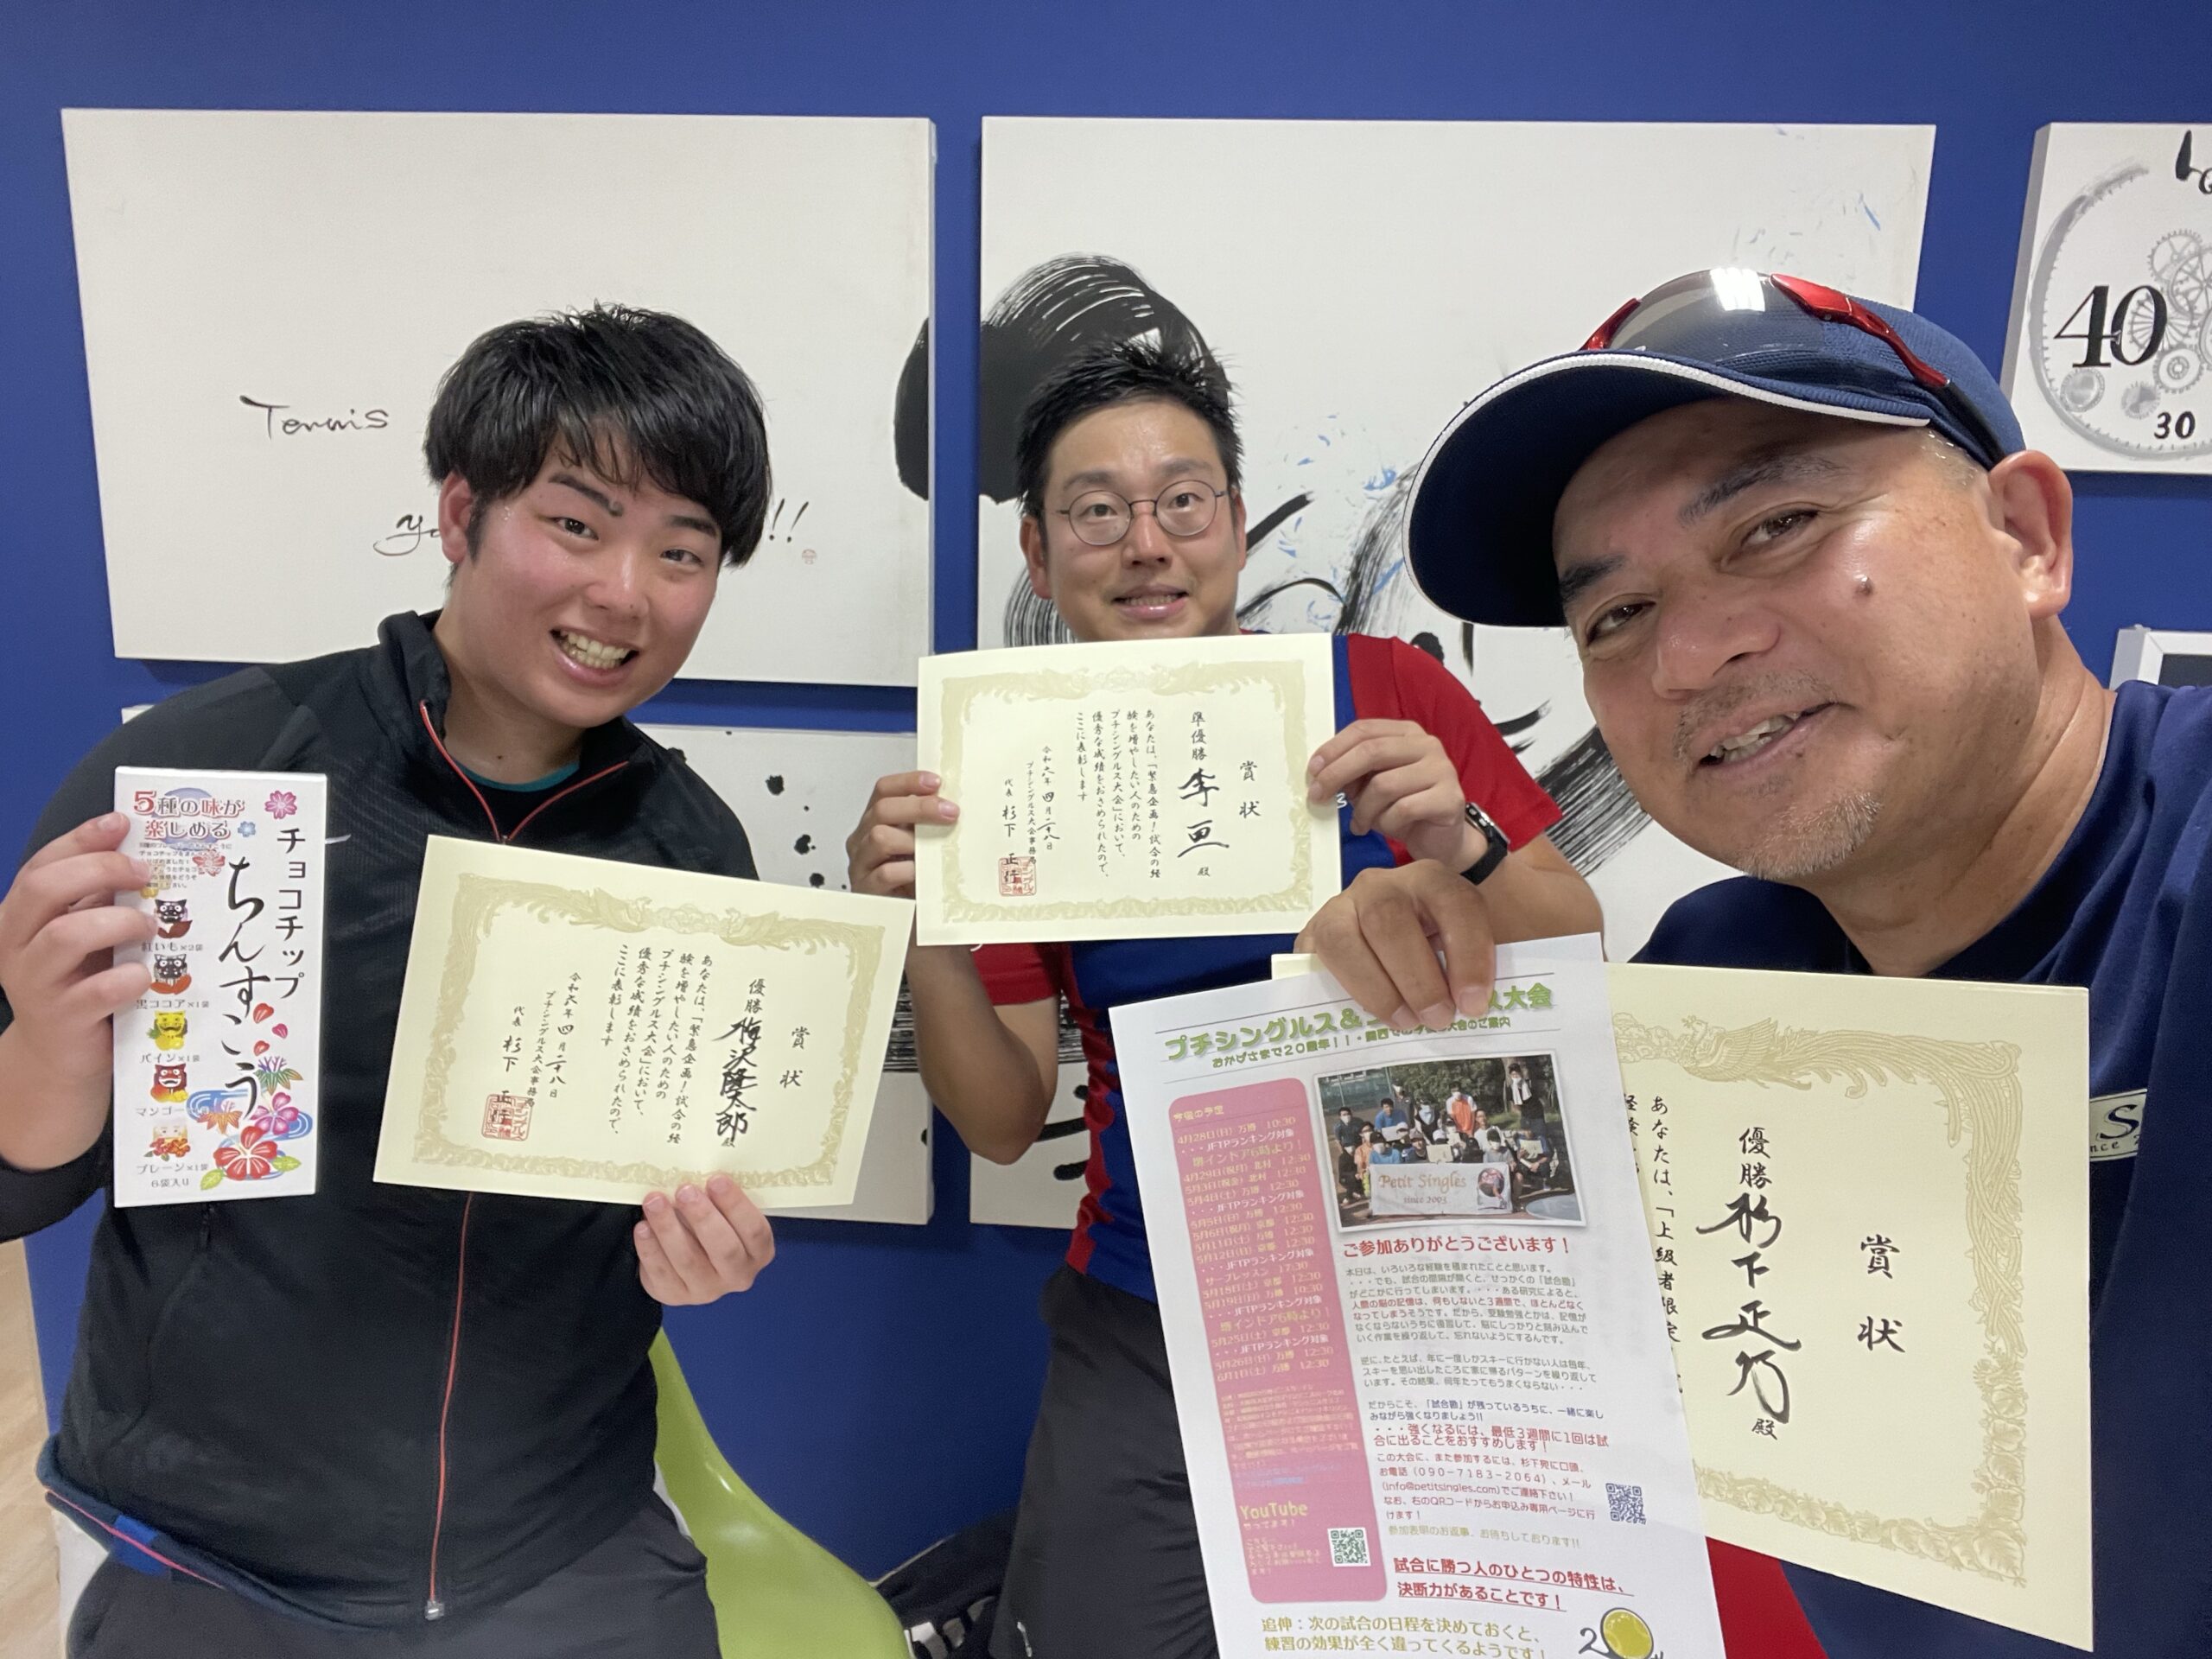 Tennis
!!
40
30
5種の味が
楽しめる
チョコチップ
ちんすこう
紅いも×2袋
黒ココア×1袋
パイン×1袋
マンゴー
プレーン×1袋
6袋入り
賞状
優勝 梅沢隆太郎 殿
あなたは、「緊急企画!試合の経
験を増やしたい人のための
プチシングルス大会」において、
優秀な成績をおさめられたので、
ここに表彰します
令和六年 四月二十八日
プチシングルス大会事務局
代表 杉下 正行
賞状
準優勝 李 殿
あなたは、「緊急企画!試合の経
験を増やしたい人のための
プチシングルス大会」において、
優秀な成績をおさめられたので、
ここに表彰します
令和六年 四月二十八日
プチシングルス大会事務局
代表 杉下 正行
プチシングルス&
大会
おかげさまで20周年!!・関西での
大会のご案内
今後の予定
4月28日(日) 万博 10:30
・・・JFTPランキング対象
堺インドア6時より!
4月29日(祝月) 北村 12:30
5月3日(祝金) 北村 12:30
5月4日(土) 万博 12:30
・・・JFTPランキング対象
5月5日(日) 万博 12:30
5月6日(祝月) 京都 12:30
5月11日(土) 万博 12:30
5月12日(日) 京都 12:30
・・・JFTPランキング対象
サーブレッスン 17:30
5月18日(土) 京都 12:30
5月19日(日) 万博 10:30
・・・JFTPランキング対象
堺インドア6時より!
5月25日(土) 京都 12:30
・・・JFTPランキング対象
5月26日(日) 万博 12:30
6月1日(土) 万博 12:30
YouTube
やってます!
Petit Singles
since 2003
ご参加ありがとうございます!
本日は、いろいろな経験を積まれたことと思います。
・・・でも、試合の間隔が開くと、せっかくの「試合勘」
がどこかに行ってしまいます。・・・ある研究によると、
人間の脳の記憶は、何もしないと3週間で、ほとんどなく
なってしまうそうです。だから、受験勉強とかは、記憶が
なくならないうちに復習して、脳にしっかりと刻み込んで
いく作業を繰り返して、忘れないようにするんです。
逆に、たとえば、年に一度しかスキーに行かない人は毎年、
スキーを思い出したころに家に帰るパターンを繰り返して
います。その結果、何年たってもうまくならない・・・
だからこそ、「試合勘」が残っているうちに、一緒に楽し
みながら強くなりましょう!!
・・・強くなるには、最低3週間に1回は試
合に出ることをおすすめします!
この大会に、また参加するには、杉下宛に口頭、
お電話(090-7183-2064)、メール
(info@petitsingles.com)でご連絡下さい!
なお、右のQRコードからお申込み専用ページに行
けます!
参加表明のお返事、お待ちしております!!
試合に勝つ人のひとつの特性は、
決断力があることです!
追伸:次の試合の日程を決めておくと、
練習の効果が全く違ってくるようです!
賞状
優勝 杉下正乃 殿
あなたは、「上級者限定